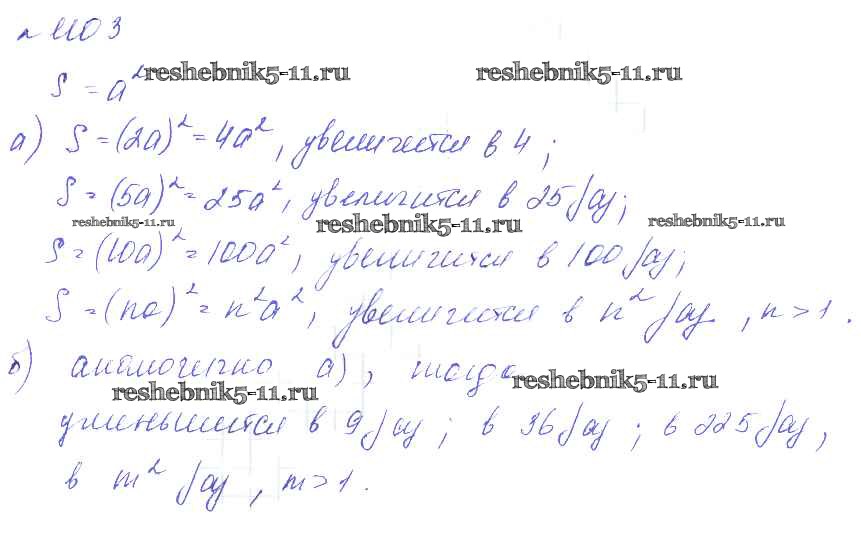 № 1103
S = a² reshebnik5-11.ru reshebnik5-11.ru
а) S = (2a)² = 4a², увеличится в 4;
S = (5a)² = 25a², увеличится в 25 раз;
reshebnik5-11.ru reshebnik5-11.ru reshebnik5-11.ru
S = (10a)² = 100a², увеличится в 100 раз;
S = (na)² = n²a², увеличится в n² раз, n > 1.
б) аналогично а), тогда reshebnik5-11.ru
reshebnik5-11.ru
уменьшится в 9 раз; в 36 раз; в 225 раз,
в m² раз, m > 1.